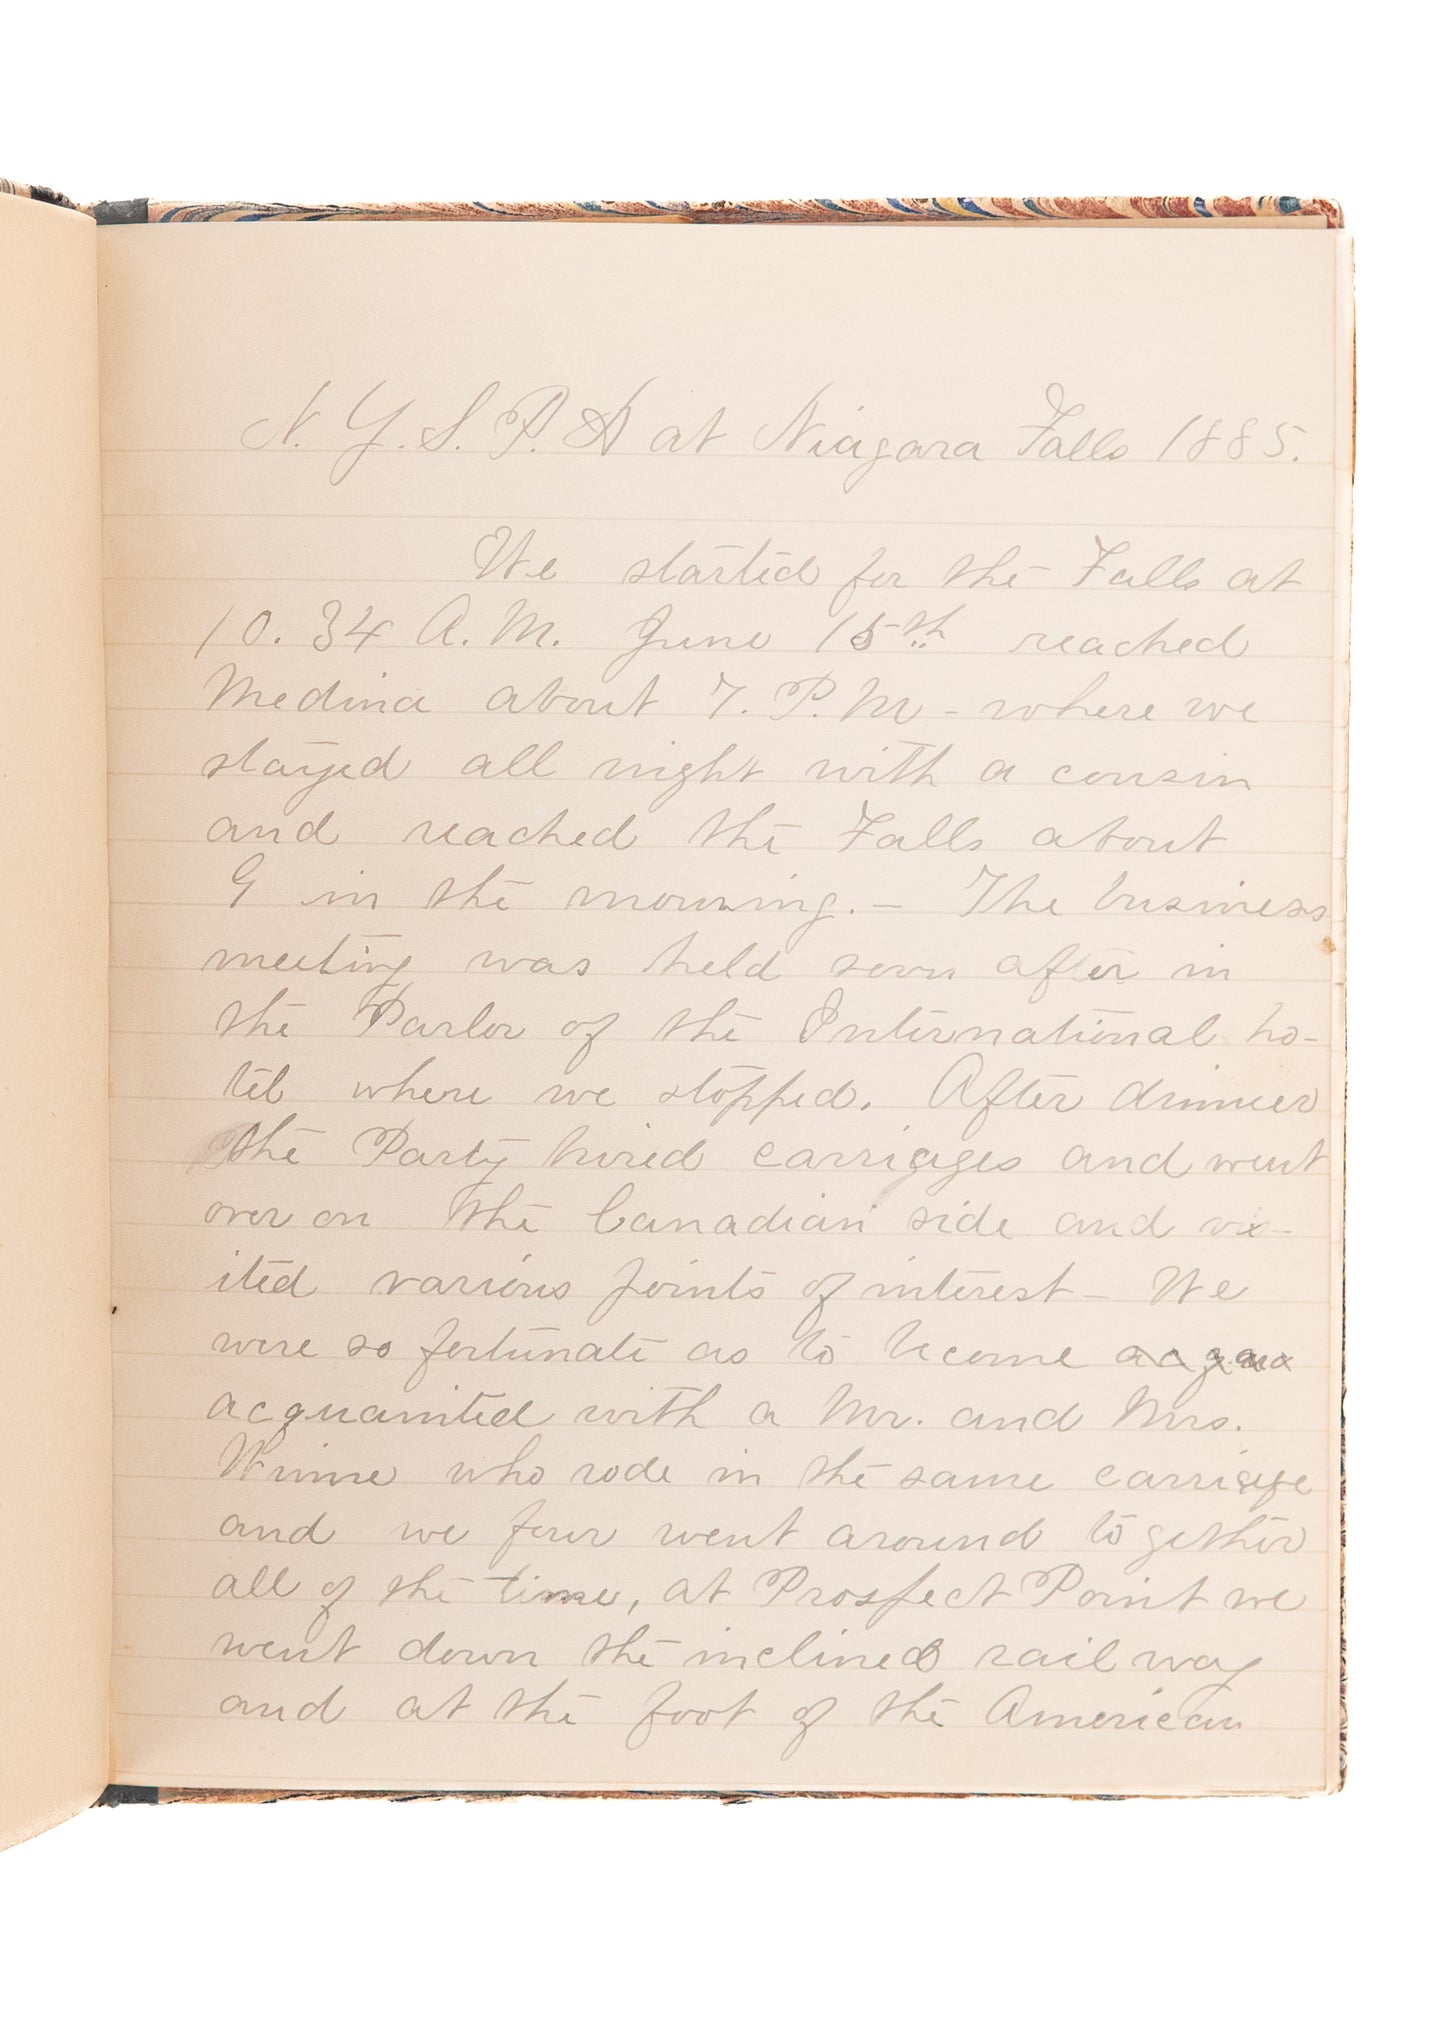 N. Y. S. P. A at Niagara Falls 1885.
We started for the Falls at
10. 34 A. M. June 15th reached
Medina about 7. P. M - where we
stayed all night with a cousin
and reached the Falls about
9 in the morning. - The business
meeting was held soon after in
the Parlor of the International ho-
tel where we stopped. After dinner
the Party hired carriages and went
over on the Canadian side and vis-
ited various points of interest - We
were so fortunate as to become
acquainted with a Mr. and Mrs.
Winne who rode in the same carriage
and we four went around together
all of the time, at Prospect Point we
went down the inclined railway
and at the foot of the American